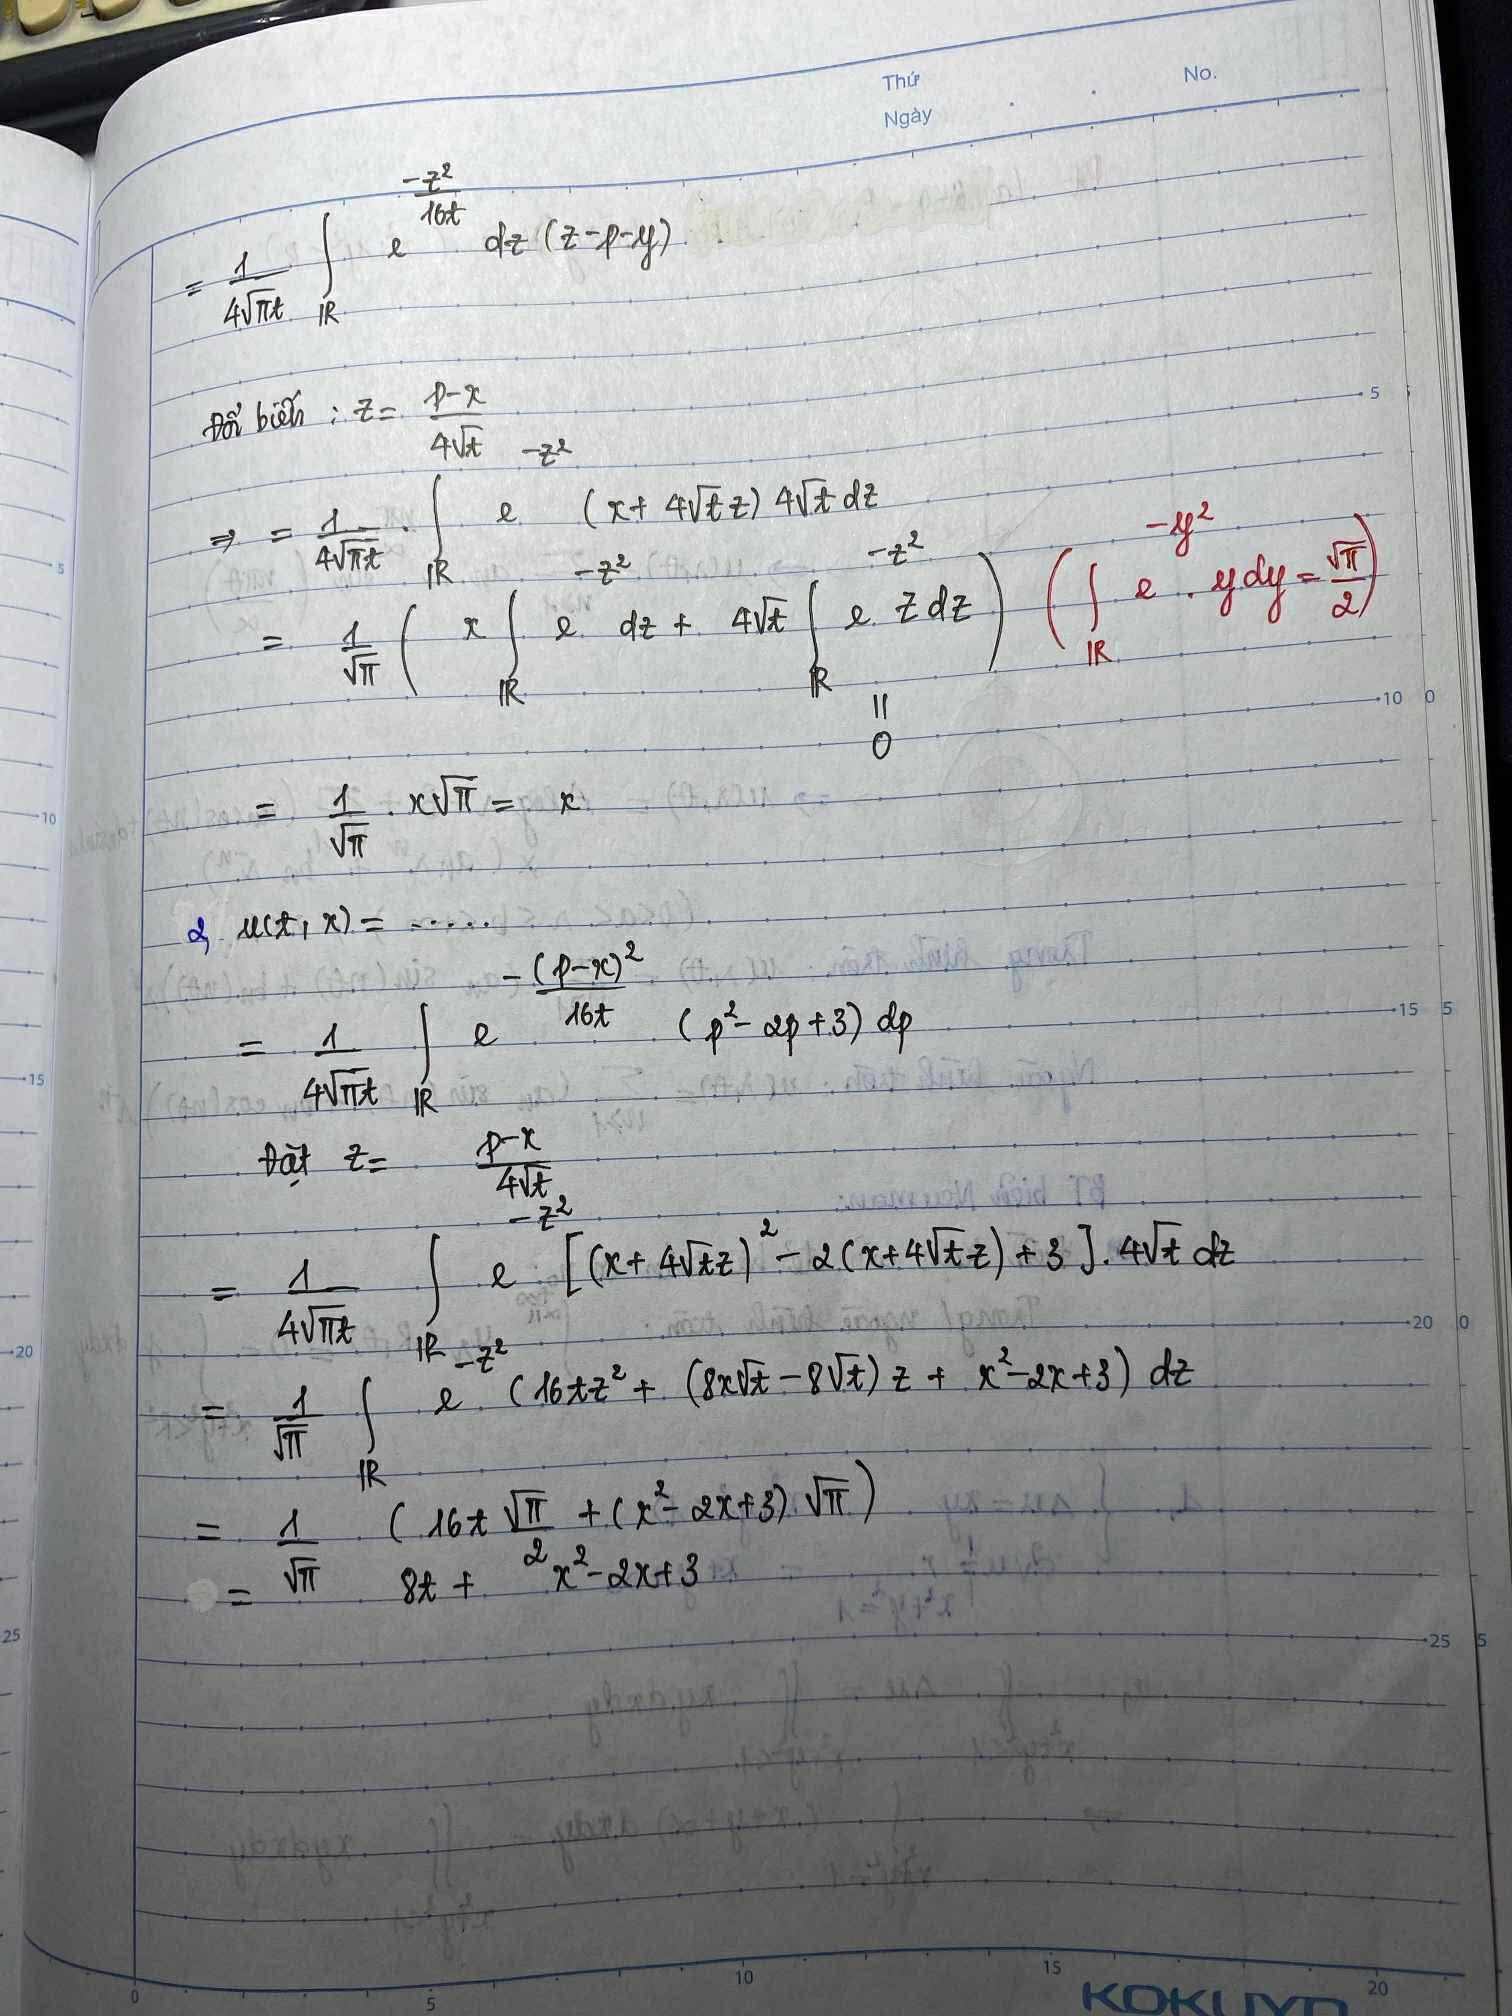 Thứ
No.
Ngày
= 1/(4√πt) ∫_ℝ e^(-z²/16t) dz (z-p-y)
Đổi biến : z = (p-x)/(4√t)
⇒ = 1/(4√πt) . ∫_ℝ e^(-z²) (x + 4√t z) 4√t dz
= 1/√π ( x ∫_ℝ e^(-z²) dz + 4√t ∫_ℝ e^(-z²) z dz ) ( ∫_ℝ e^(-y²) . y dy = √π/2 )
॥
0
= 1/√π . x√π = x
2, u(t, x) = ......
= 1/(4√πt) ∫_ℝ e^(-(p-x)²/16t) (p² - 2p + 3) dp
Đặt z = (p-x)/(4√t)
= 1/(4√πt) ∫_ℝ e^(-z²) [(x + 4√t z)² - 2(x + 4√t z) + 3] . 4√t dz
= 1/√π ∫_ℝ e^(-z²) (16tz² + (8x√t - 8√t) z + x² - 2x + 3) dz
= 1/√π (16t √π/2 + (x² - 2x + 3) √π)
= 8t + x² - 2x + 3
KOKUYO